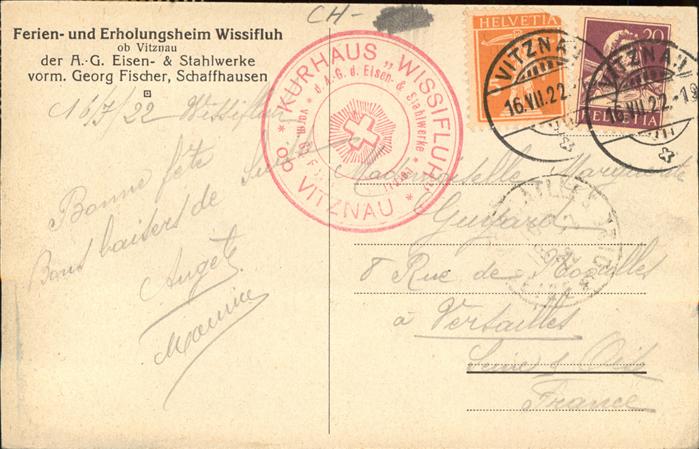 CH-
Ferien- und Erholungsheim Wissifluh
ob Vitznau
der A.-G. Eisen- & Stahlwerke
vorm. Georg Fischer, Schaffhausen
16/7/22 Wissifluh
Bonne fête
Bons baisers de Suisse
Angèle
Maurice
* KURHAUS „WISSIFLUH" *
ob VITZNAU
d. A.G. d. Eisen- & Stahlwerke
HELVETIA
20
HELVETIA
VITZNAU
16.VII.22.
VITZNAU
16.VII.22.-19
Mademoiselle Marguerite
Guyard
8 Rue de Noailles
à Versailles
Seine & Oise
France